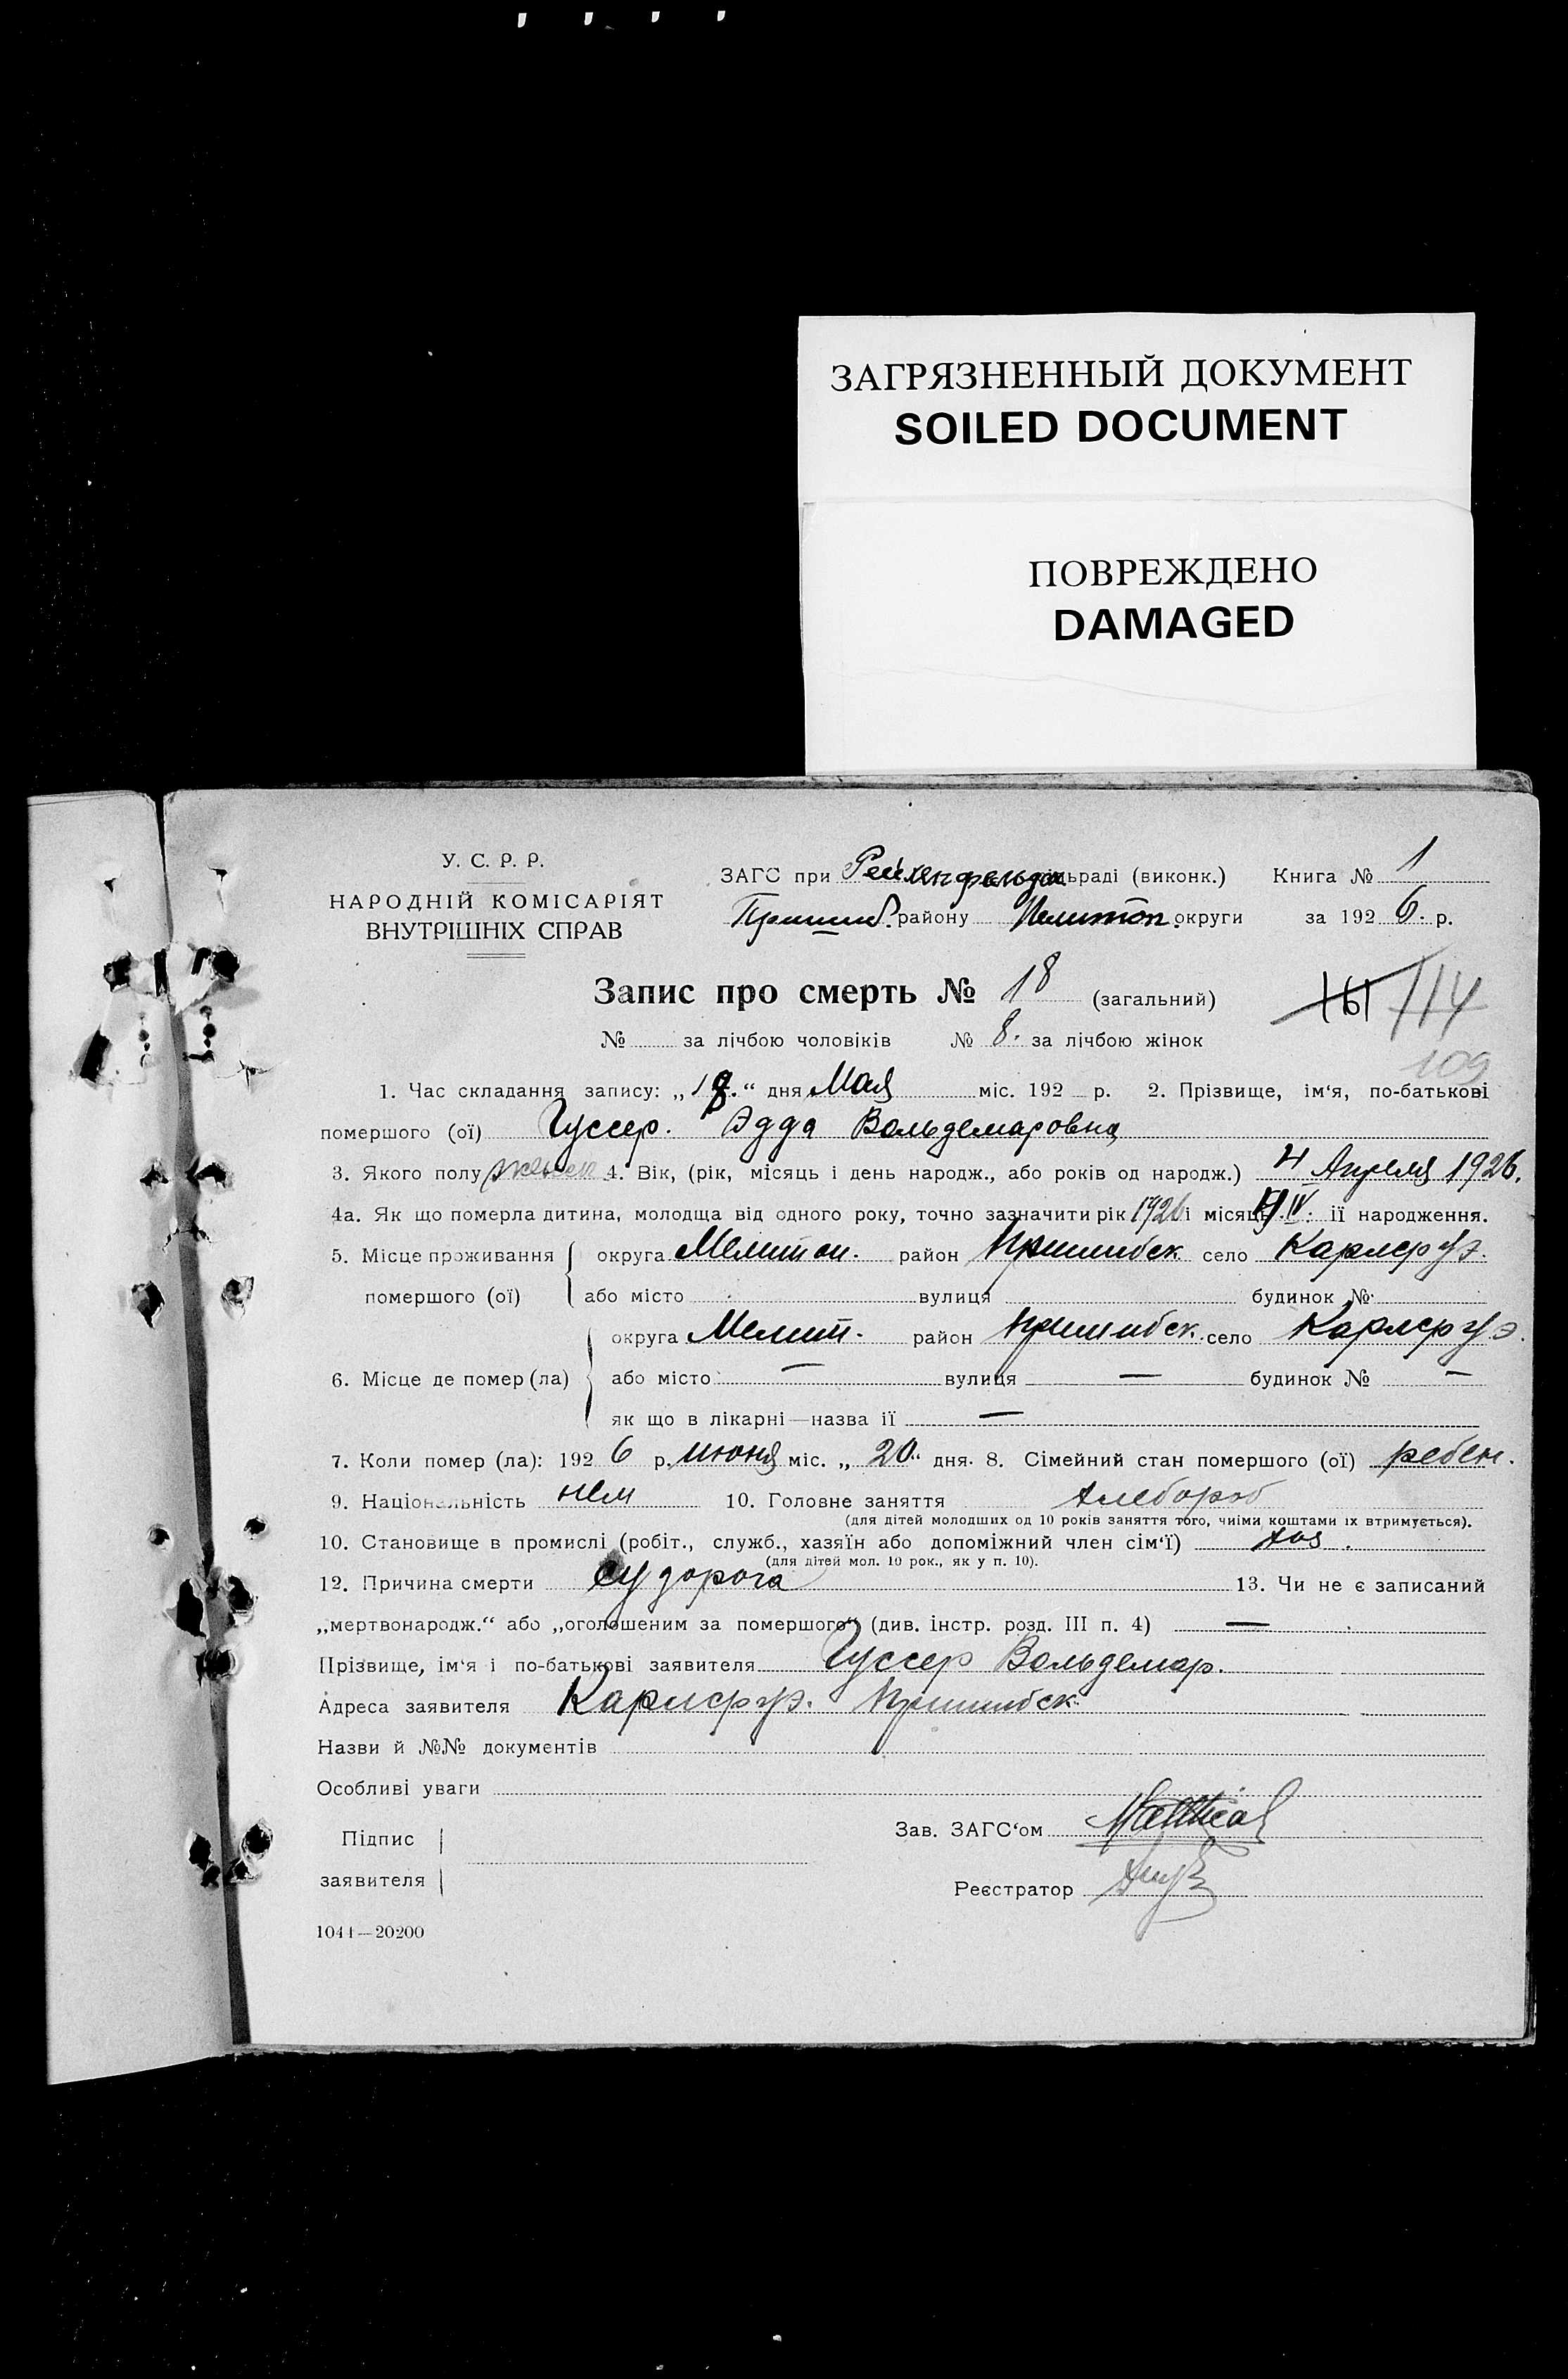 ЗАГРЯЗНЕННЫЙ ДОКУМЕНТ
SOILED DOCUMENT
ПОВРЕЖДЕНО
DAMAGED
У. С. Р. Р.
НАРОДНІЙ КОМІСАРІЯТ
ВНУТРІШНІХ СПРАВ
ЗАГС при Рейхенфельдсільраді (виконк.) Книга № 1
Пришиб. району Мелитоп. округи за 1926. р.
Запис про смерть № 18 (загальний)
161 114
№ за лічбою чоловіків № 8. за лічбою жінок
109
1. Час складання запису: „ “ дня Мая міс. 192 р. 2. Прізвище, ім‘я, по-батькові
помершого (ої) Гуссер. Эдда Вольдемаровна
3. Якого полу женск 4. Вік, (рік, місяць і день народж., або років од народж.) 4 Апреля 1926.
4а. Як що померла дитина, молодща від одного року, точно зазначити рік 1926 і місяць IV. її народження.
5. Місце проживання округа Мелитоп. район Пришибск село Карлсруэ.
помершого (ої) або місто вулиця будинок №
округа Мелит. район Пришибск. село Карлсруэ.
6. Місце де помер (ла) або місто — вулиця — будинок № —
як що в лікарні—назва її —
7. Коли помер (ла): 1926 р. июня міс. „20“ дня. 8. Сімейний стан помершого (ої) ребен.
9. Національність нем 10. Головне заняття хлебороб
(для дітей молодших од 10 років заняття того, чиїми коштами їх втримується).
10. Становище в промислі (робіт., служб., хазяїн або допоміжний член сім‘ї) хоз.
(для дітей мол. 10 рок., як у п. 10).
12. Причина смерти судорога 13. Чи не є записаний
„мертвонародж.“ або „оголошеним за помершого“ (див. інстр. розд. III п. 4) —
Прізвище, ім‘я і по-батькові заявителя Гуссер Вольдемар.
Адреса заявителя Карлсруэ. Пришибск.
Назви й №№ документів
Особливі уваги
Підпис
заявителя
Зав. ЗАГС‘ом
Реєстратор
1044—20200